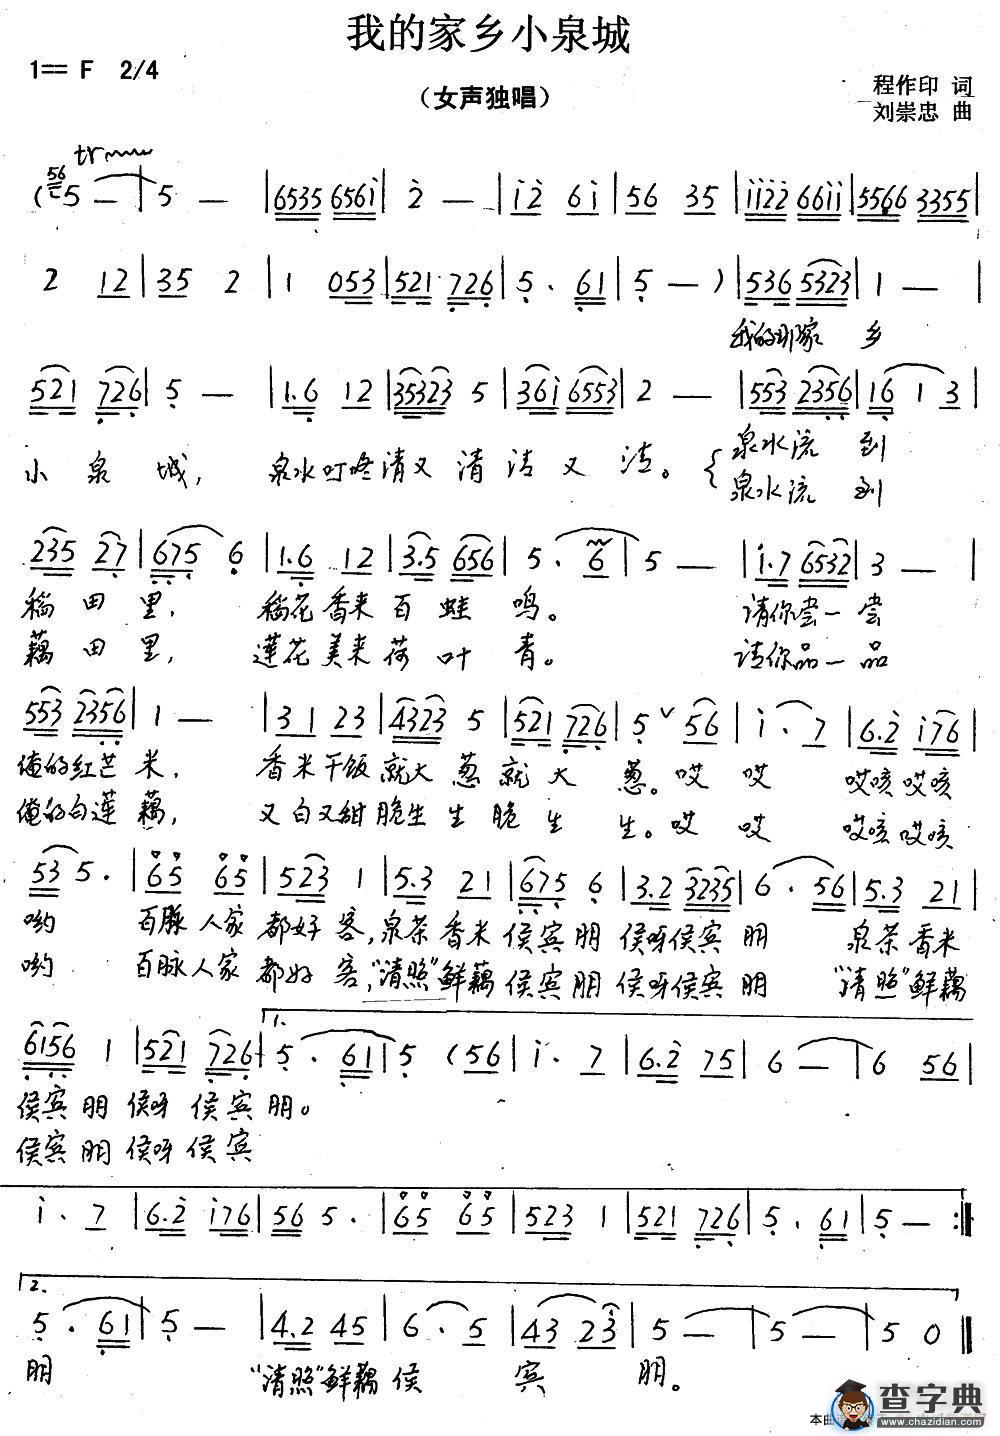 我的家乡小泉城
1== F 2/4
（女声独唱）
程作印 词
刘崇忠 曲
tr
56
( 5 — | 5 — | 6535 6561 | 2 — | 12 61 | 56 35 | 1122 6611 | 5566 3355 |
2 12 | 35 2 | 1 053 | 521 726 | 5 . 61 | 5 — ) | 536 5323 | 1 — |
我的那家 乡
521 726 | 5 — | 1.6 12 | 35323 5 | 361 6553 | 2 — | 553 2356 | 16 1 3 |
小 泉 城， 泉水叮咚清又 清 洁 又 洁。 { 泉水流 到
泉水流 到
235 27 | 675 6 | 1.6 12 | 3.5 656 | 5 . 6 | 5 — | 1.7 6532 | 3 — |
稻 田 里， 稻花 香来 百 蛙 鸣。 请你尝一尝
藕 田 里， 莲花 美来 荷 叶 青。 请你品一品
553 2356 | 1 — | 31 23 | 4323 5 | 521 726 | 5 ∨ 56 | 1 . 7 | 6.2 176 |
俺的红芒 米， 香米干饭 就大 葱 就 大 葱。哎 哎 哎咳哎咳
俺的白莲 藕， 又白又甜 脆生 生 脆 生 生。哎 哎 哎咳哎咳
53 5. | 65 65 | 523 1 | 5.3 21 | 675 6 | 3.2 3235 | 6 . 56 | 5.3 21 |
哟 百脉人家 都好 客，泉茶香米 侯宾 朋 侯呀侯宾 朋 泉茶香米
哟 百脉人家 都好 客，“清照”鲜藕 侯宾 朋 侯呀侯宾 朋 “清照”鲜藕
1.
6156 1 | 521 726 | 5 . 61 | 5 (56 | 1 . 7 | 6.2 75 | 6 — | 6 56 |
侯宾 朋 侯呀 侯宾 朋。
侯宾 朋 侯呀 侯宾
1 . 7 | 6.2 176 | 56 5. | 65 65 | 523 1 | 521 726 | 5 . 61 | 5 — :‖
2.
5 . 61 | 5 — | 4.2 45 | 6 . 5 | 43 23 | 5 — | 5 — | 5 0 ‖
朋 “清照”鲜藕 侯 宾 朋。
本曲
查字典
www.chazidian.com